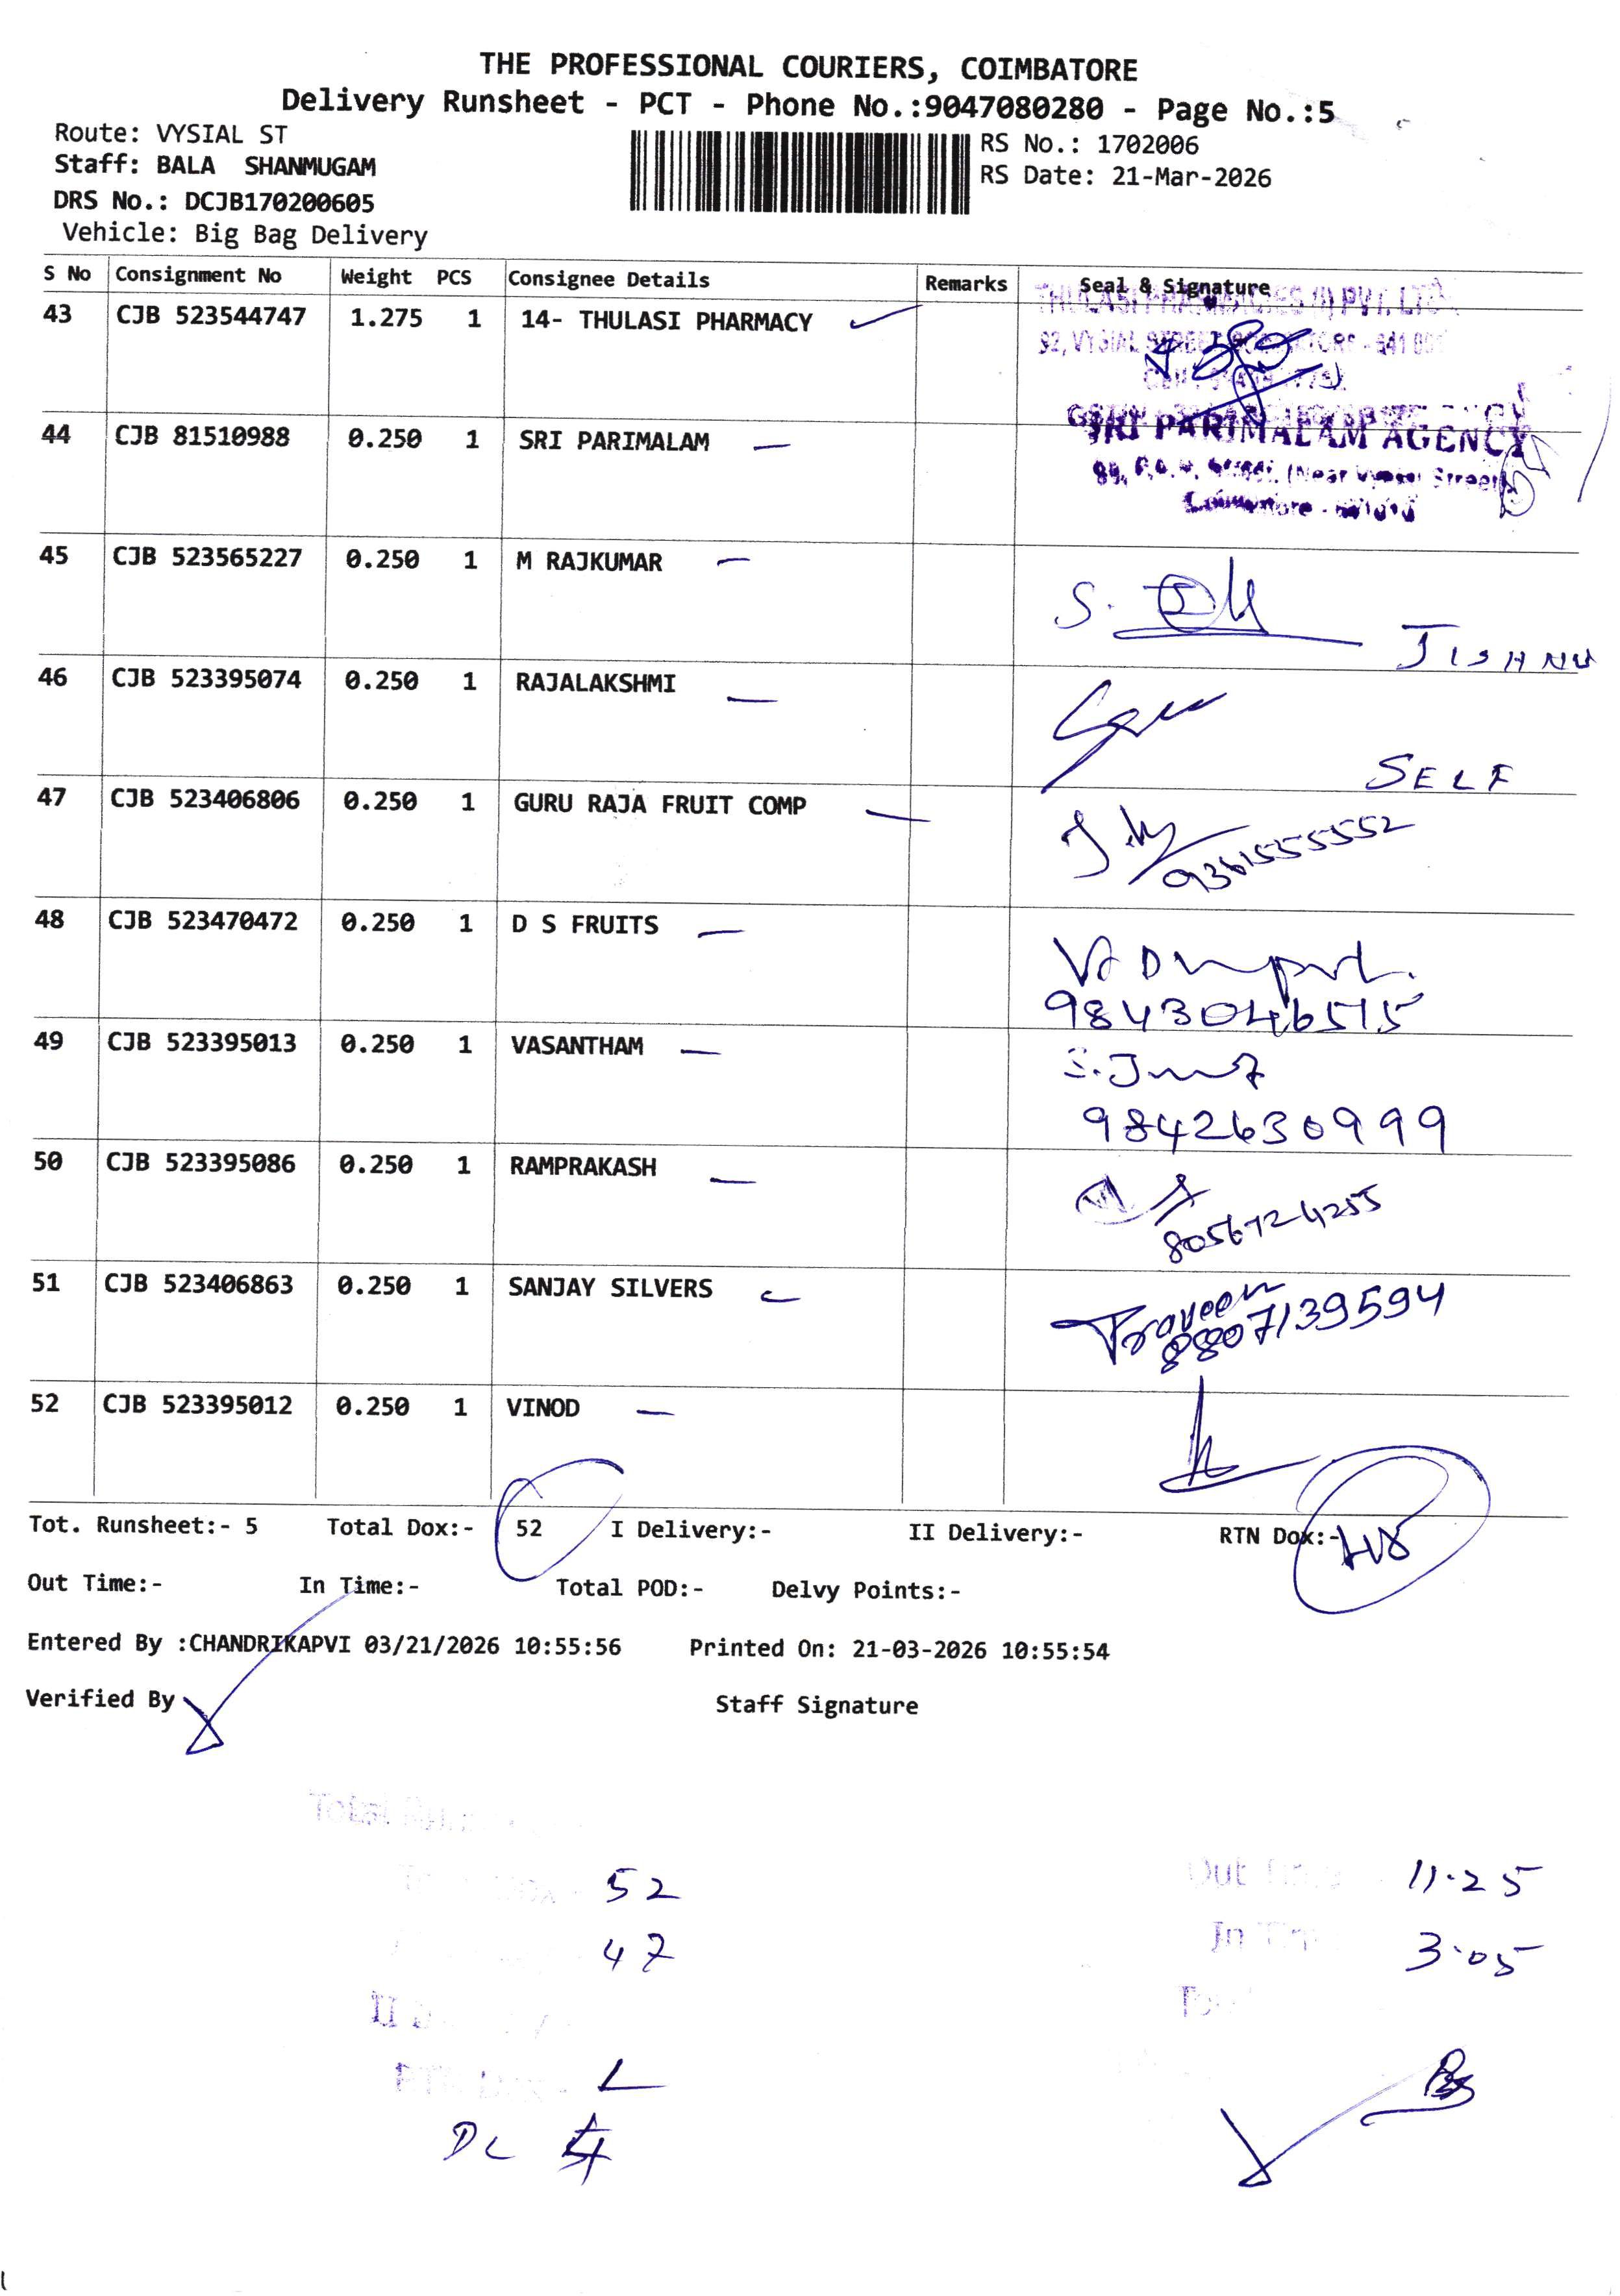 THE PROFESSIONAL COURIERS, COIMBATORE
Delivery Runsheet - PCT - Phone No.:9047080280 - Page No.:5
Route: VYSIAL ST
RS No.: 1702006
Staff: BALA SHANMUGAM
RS Date: 21-Mar-2026
DRS No.: DCJB170200605
Vehicle: Big Bag Delivery
S No Consignment No Weight PCS Consignee Details Remarks Seal & Signature
43 CJB 523544747 1.275 1 14- THULASI PHARMACY
92, VYSIAL STREET
44 CJB 81510988 0.250 1 SRI PARIMALAM
SRI PARIMALAM AGENCY
(Near Vysial Street)
Coimbatore
45 CJB 523565227 0.250 1 M RAJKUMAR
S.
JISHNU
46 CJB 523395074 0.250 1 RAJALAKSHMI
SELF
47 CJB 523406806 0.250 1 GURU RAJA FRUIT COMP
9361555552
48 CJB 523470472 0.250 1 D S FRUITS
9843046515
49 CJB 523395013 0.250 1 VASANTHAM
9842630999
50 CJB 523395086 0.250 1 RAMPRAKASH
8056724255
51 CJB 523406863 0.250 1 SANJAY SILVERS
Praveen
8807139594
52 CJB 523395012 0.250 1 VINOD
Tot. Runsheet:- 5 Total Dox:- 52 I Delivery:- II Delivery:- RTN Dox:-
Out Time:- In Time:- Total POD:- Delvy Points:-
Entered By :CHANDRIKAPVI 03/21/2026 10:55:56 Printed On: 21-03-2026 10:55:54
Verified By Staff Signature
Total
52
Out 11.25
47
In 3.05
II
DL